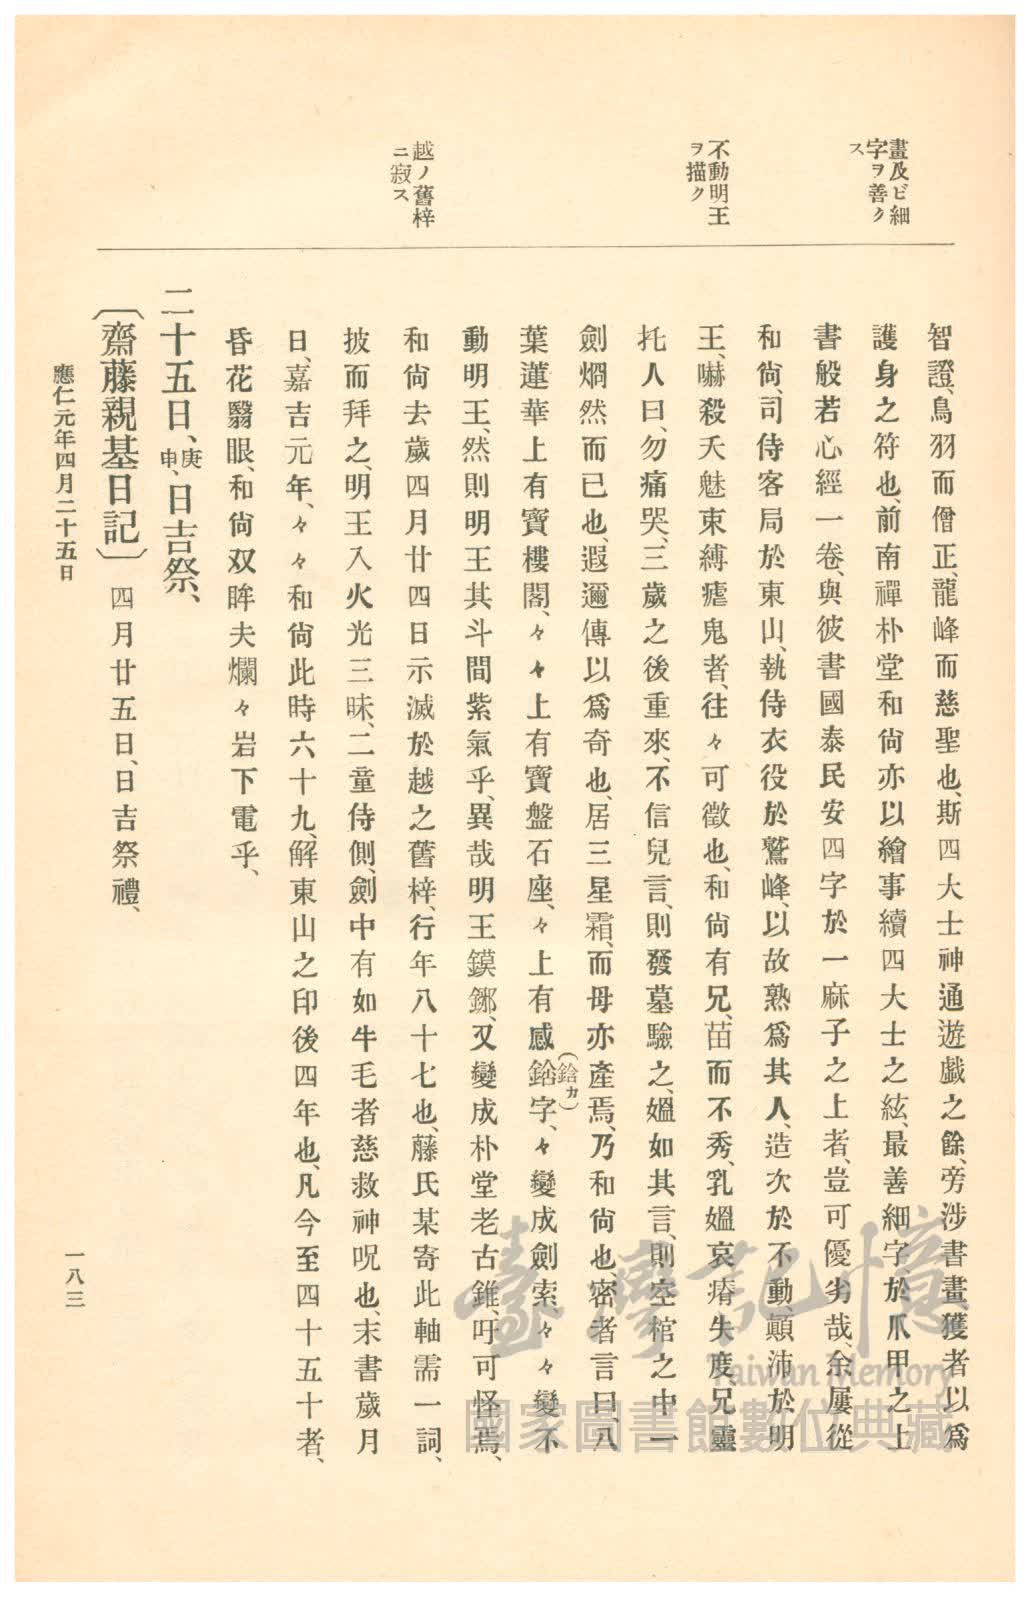 畫及ビ細
字ヲ善ク
ス
不動明王
ヲ描ク
越ノ舊梓
ニ寂ス
智證、鳥羽而僧正、龍峰而慈聖也、斯四大士神通遊戲之餘、旁涉書畫獲者以爲
護身之符也、前南禪朴堂和尙亦以繪事續四大士之絃、最善細字、於爪甲之上
書般若心經一卷、與彼書國泰民安四字於一麻子之上者、豈可優劣哉、余屢從
和尙、司侍客局於東山、執侍衣役於鷲峰、以故熟爲其人、造次於不動、顚沛於明
王、嚇殺夭魅束縛瘧鬼者、往々可徵也、和尙有兄、苗而不秀、乳媼哀瘠失度、兄靈
托人曰、勿痛哭、三歲之後重來、不信兒言、則發墓驗之、媼如其言、則空棺之中一
劍烱然而已也、遐邇傳以爲奇也、居三星霜、而母亦產焉、乃和尙也、密者言曰、八
葉蓮華上有寶樓閣、々々上有寶盤石座、々上有感䤴字、々變成劍索、々々變不
(鋡カ)
動明王、然則明王其斗間紫氣乎、異哉明王鏌鋣、又變成朴堂老古錐、吁可怪焉、
和尙去歲四月廿四日示滅於越之舊梓、行年八十七也、藤氏某寄此軸需一詞、
披而拜之、明王入火光三昧、二童侍側、劍中有如牛毛者慈救神呪也、末書歲月
日、嘉吉元年、々々和尙此時六十九、解東山之印後四年也、凡今至四十五十者、
昏花翳眼、和尙双眸夫爛々岩下電乎、
二十五日、庚申、日吉祭、
〔齋藤親基日記〕 四月廿五日、日吉祭禮、
應仁元年四月二十五日
一八三
臺灣記憶
Taiwan Memory
國家圖書館數位典藏